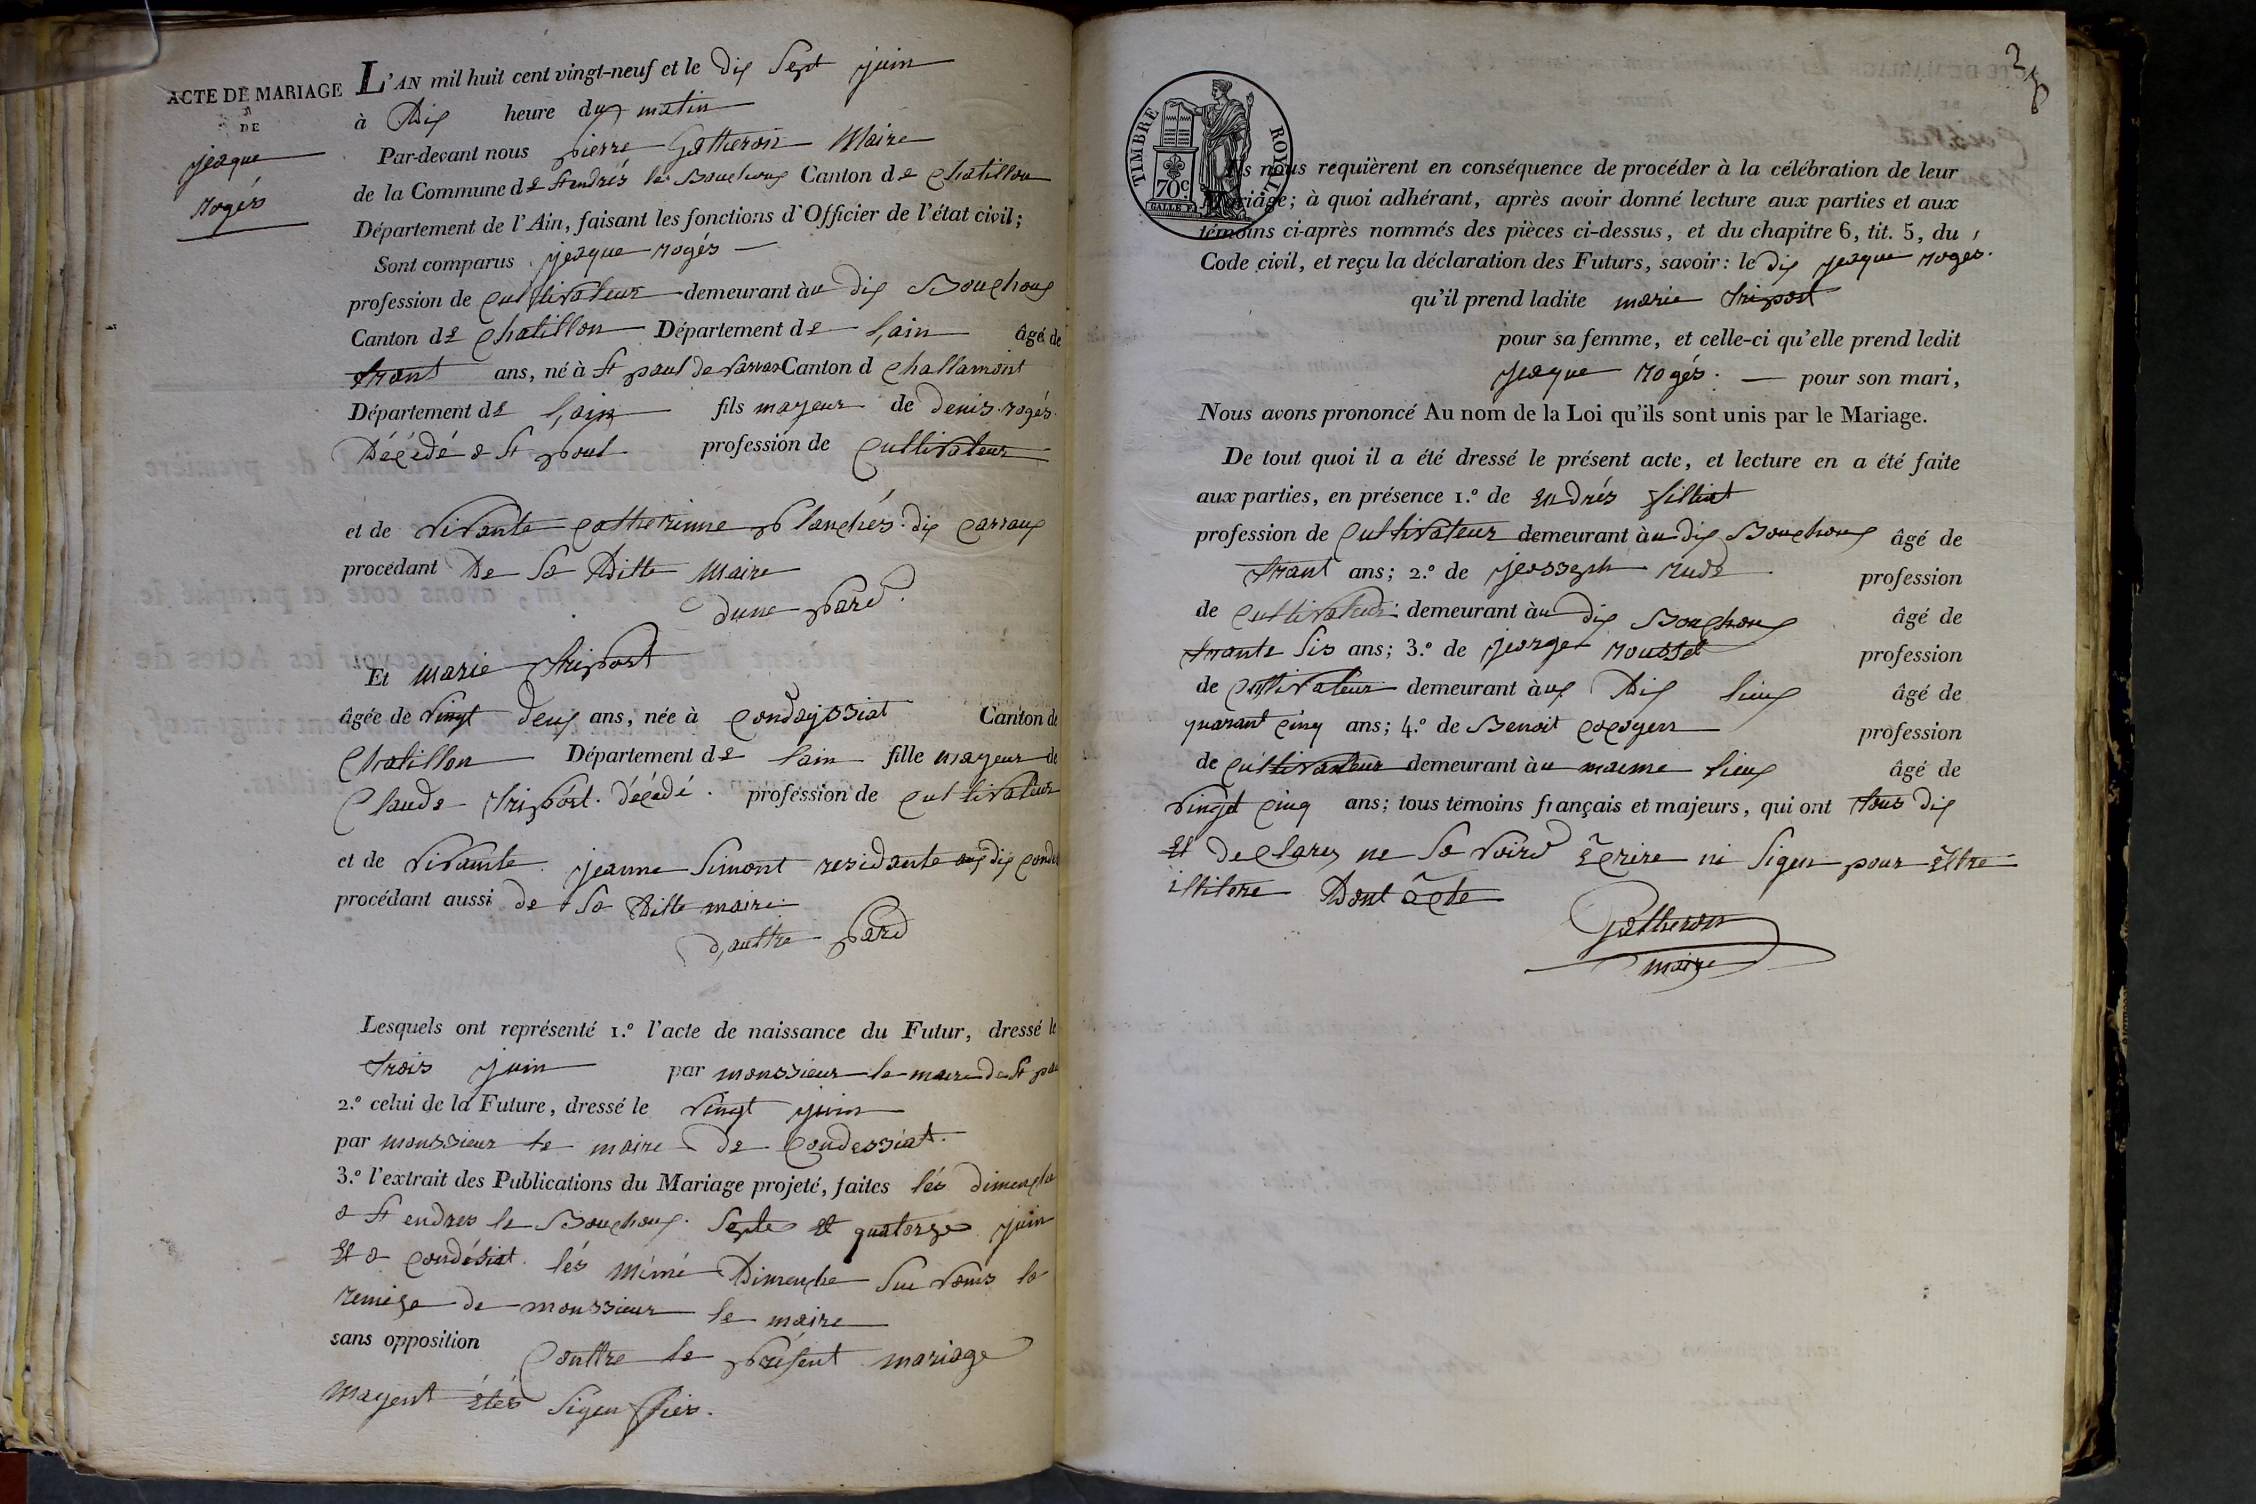 ACTE DE MARIAGE
DE
jeaque
rogés
L'AN mil huit cent vingt-neuf et le dix Sept juin
à Dix heure du matin
Par-devant nous pierre Gatheron Maire
de la Commune de St endrés le Bouchoux Canton de Chatillon
Département de l'Ain, faisant les fonctions d'Officier de l'état civil;
Sont comparus jeaque rogés
profession de Cultivateur demeurant àu dix Bouchoux
Canton de Chatillon Département de l,ain âgé de
trant ans, né à St paul de varax Canton d Challamont
Département de l,ain fils mayeur de denis rogés
Décédé a St poul profession de Cultivateur
et de vivante Catherinne planchés dix Carraux
procédant De Sa Ditte Maire
dune pard
Et marie tripost
âgée de vingt deux ans, née à Condayssiat Canton de
Chatillon Département de lain fille mayeur de
Claude tripost décédé profession de Cultivateur
et de vivante jeanne Simont residante aux dix
procédant aussi de Sa Ditte maire
d,auttre pard
Lesquels ont représenté 1.º l'acte de naissance du Futur, dressé le
trois juin par monssieur le maire de St
2.º celui de la Future, dressé le vingt juin
par monssieur le maire de Condessiat.
3.º l'extrait des Publications du Mariage projeté, faites lés dimenche
a St endres le Bouchoux Septe et quatorze juin
Et a Condésiat lés mémé Dimenche Sur vams la
remise de monssieur le maire
sans opposition Conttre le présent mariage
mayent étés Sigen fiés.
TIMBRE ROYAL
70c
Ils nous requièrent en conséquence de procéder à la célébration de leur
Mariage; à quoi adhérant, après avoir donné lecture aux parties et aux
témoins ci-après nommés des pièces ci-dessus, et du chapitre 6, tit. 5, du
Code civil, et reçu la déclaration des Futurs, savoir: le dix jeaque rogés.
qu'il prend ladite marie tripost
pour sa femme, et celle-ci qu'elle prend ledit
jeaque rogés. pour son mari,
Nous avons prononcé Au nom de la Loi qu'ils sont unis par le Mariage.
De tout quoi il a été dressé le présent acte, et lecture en a été faite
aux parties, en présence 1.º de endrés filliat
profession de Cultivateur demeurant àu dix Bouchoux âgé de
trant ans; 2.º de jeosseph rude profession
de Cultivateur demeurant àu dix Bouchoux âgé de
trante Sis ans; 3.º de jeorge roussel profession
de Cultivateur demeurant àux Dix lieux âgé de
quarant cinq ans; 4.º de Benoit profession
de Cultivateur demeurant àu maeme lieux âgé de
vingt cinq ans; tous témoins français et majeurs, qui ont tous dix
Et declarez ne Sa voird Ecrire ni Sigen pour Ettre
illitere Dont acte
Gatheron
maire